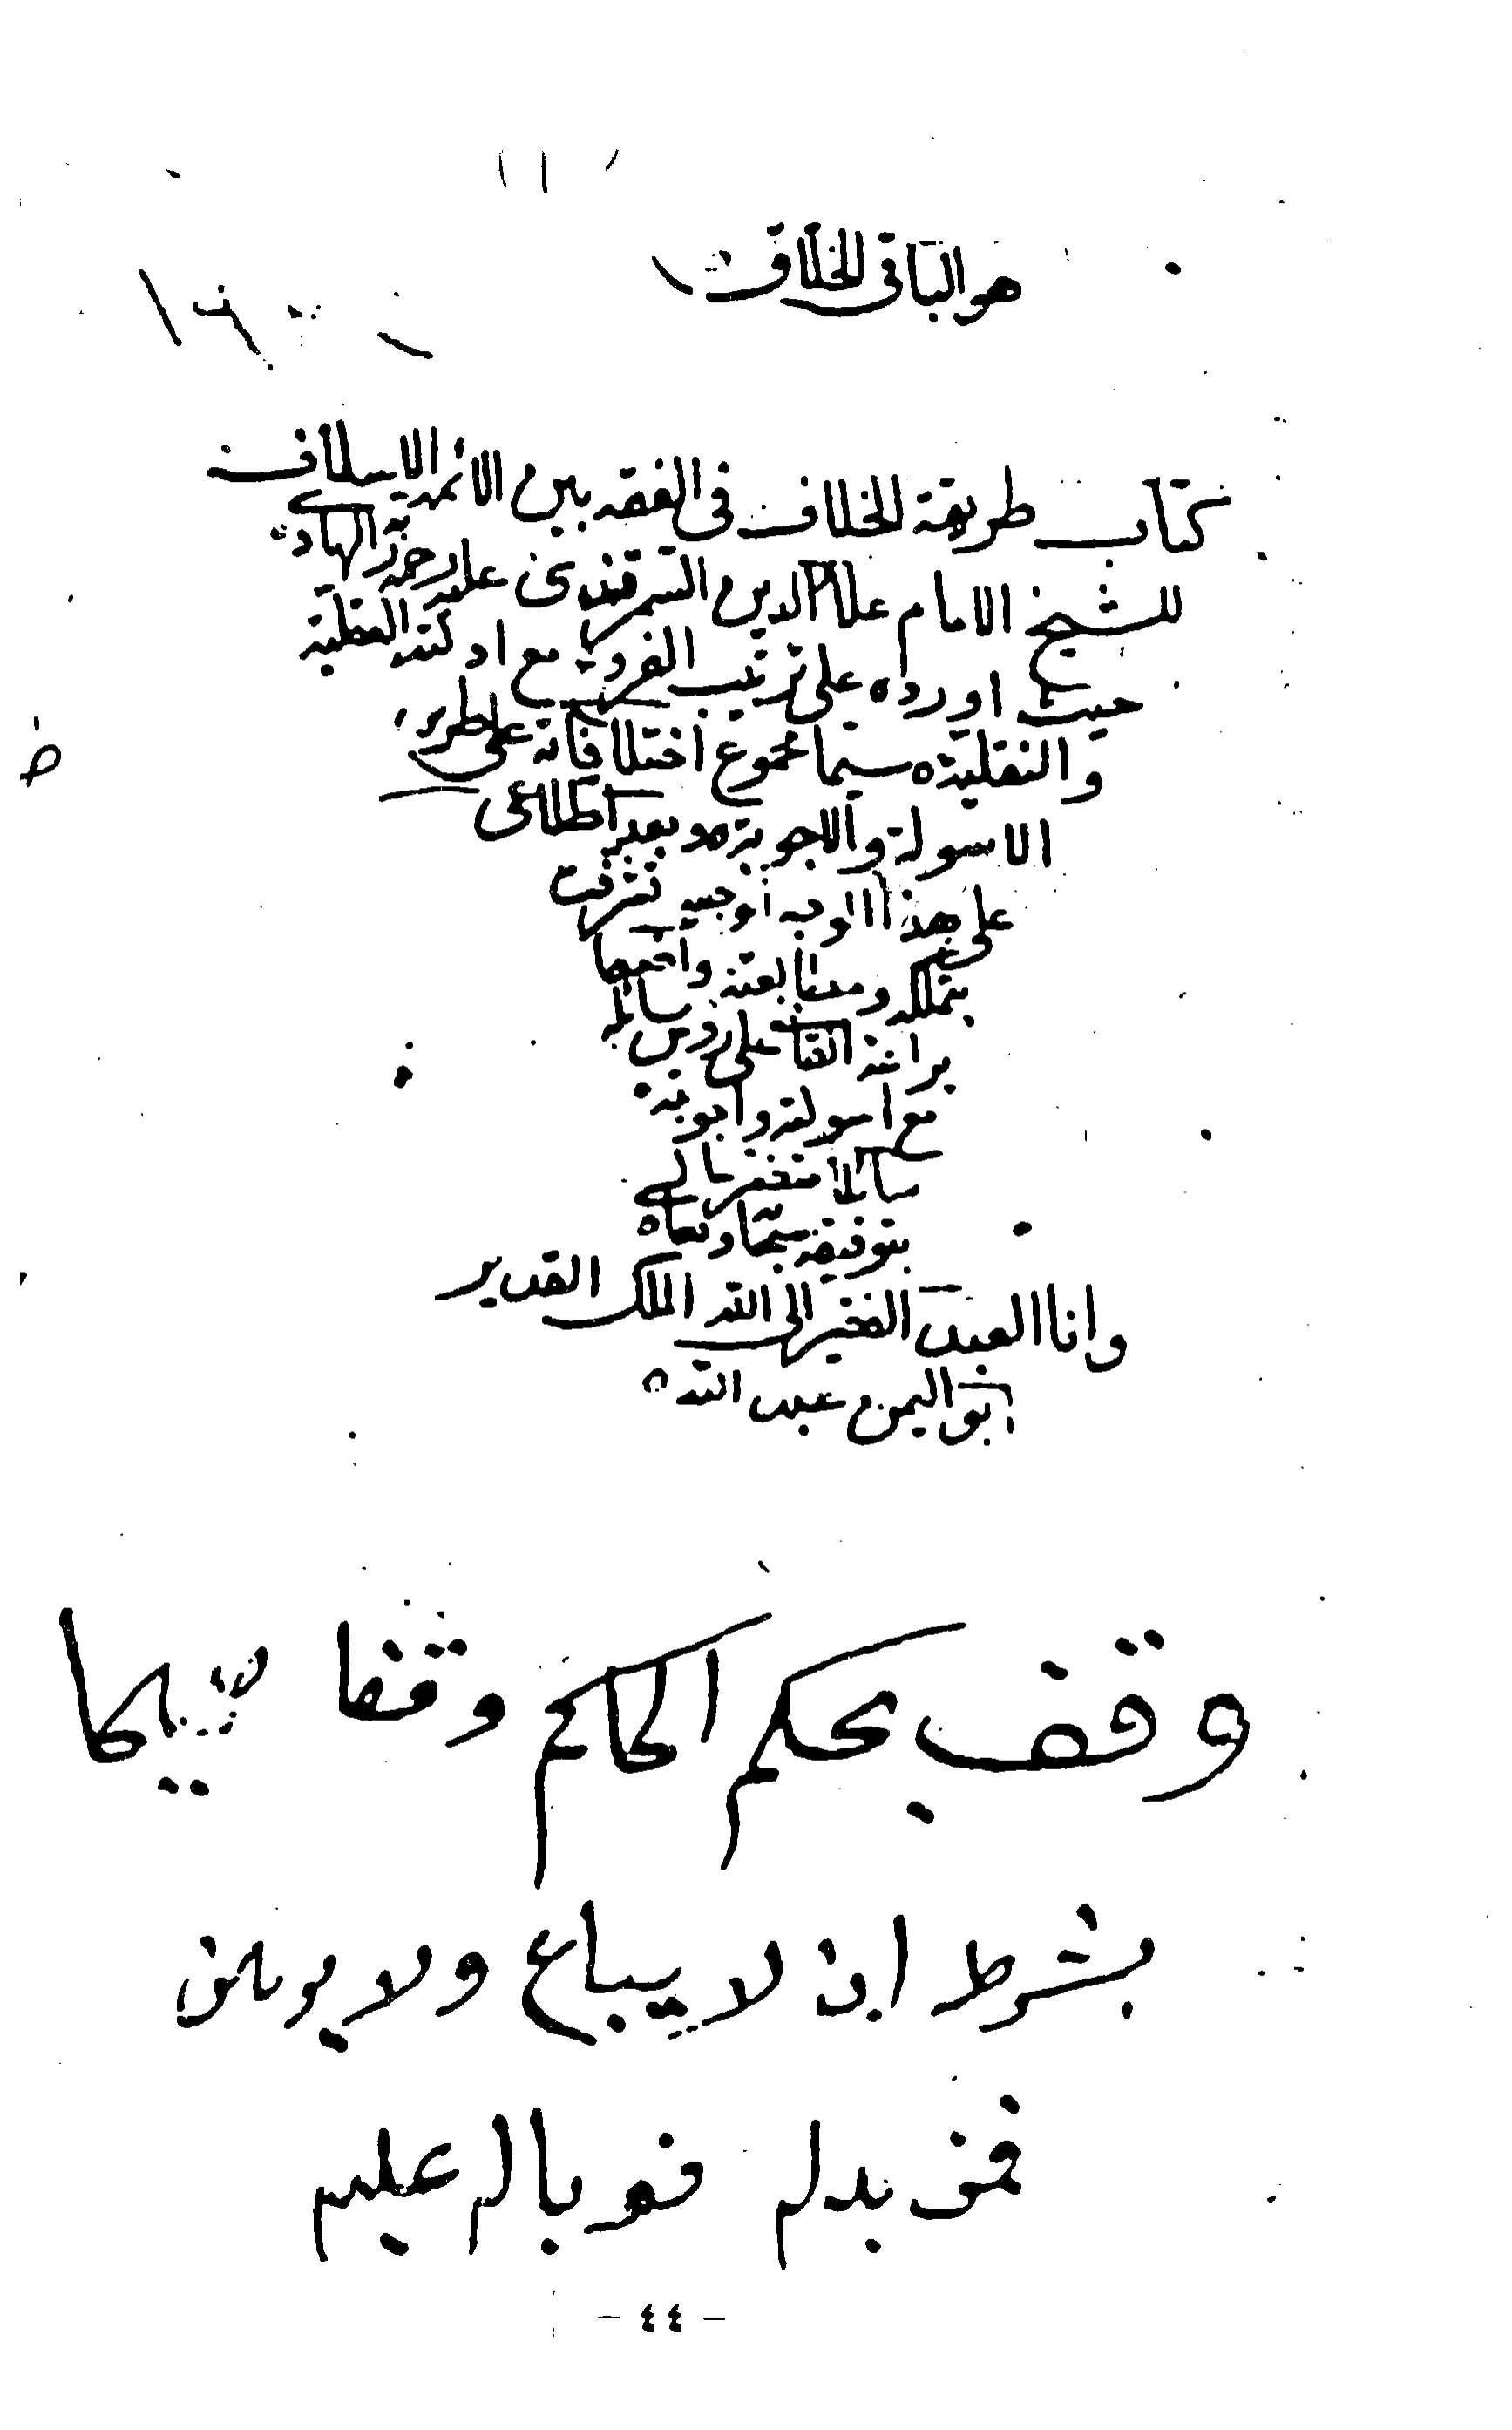 هو الباقى الخلاق
كتاب طريقة الخلاف فى الفقه بين الائمة الاسلاف
للشيخ الامام علاء الدين السمرقندى عليه رحمة الهادى
حيث اورده على ترتيب الفروع مع ادلته العقلية
والنقلية سيما مجموع اختلافاته على طريق
الاسولة والاجوبة وبعد اطلاعى
على هذا الوجه الوجيه تشرفت
بتملكه ومطالعته
على رؤس
مع اسولته واجوبته
سائلا متضرعا الى
بتوفيقه
وانا العبد الفقير الى الله الملك القدير
ابو اليمن عبد الله
وقف بحكم الحاكم وقفا
بشرط ان لا يباع ولا يوهن
فمن بدله فوباله عليه
- ٤٤ -